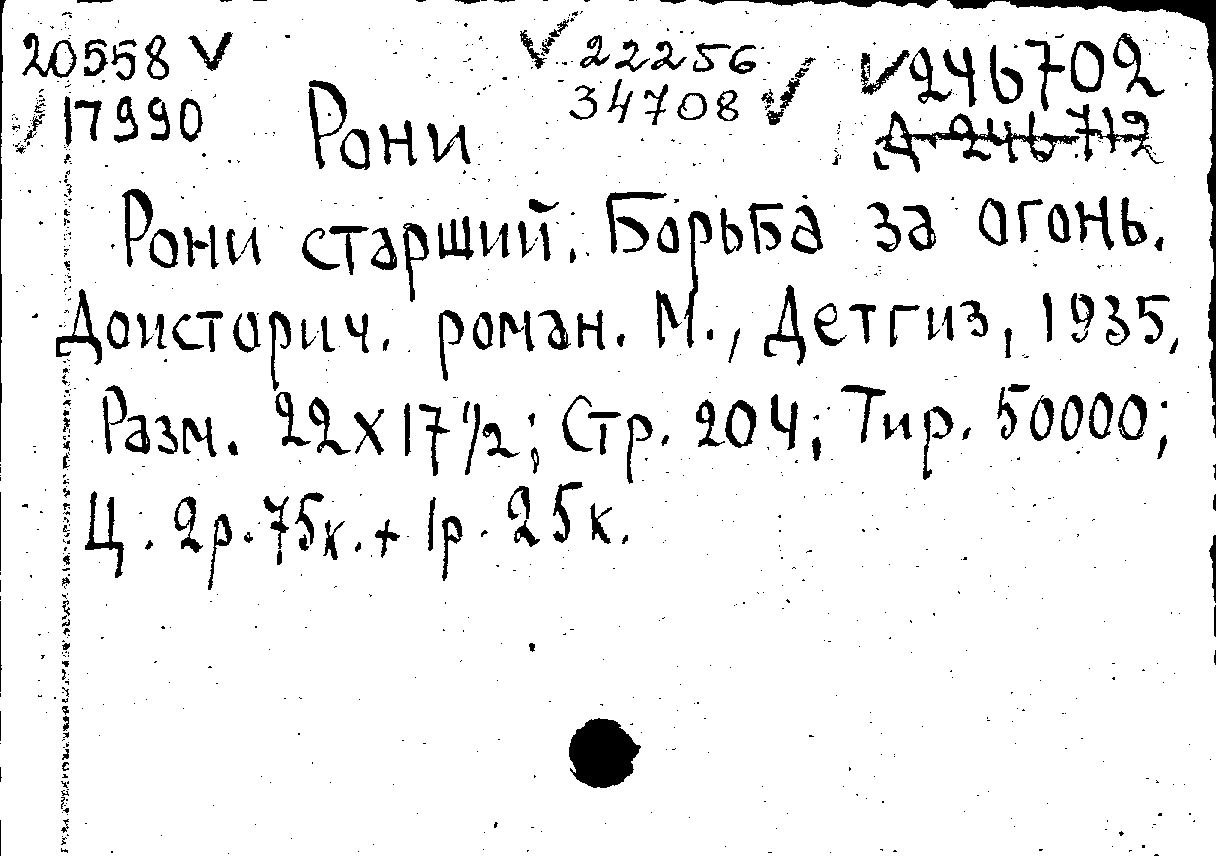 20558 ✓ ✓ 22256 ✓ 246702
✓ 17990 34708 ✓ А-246712
Рони
Рони старший. Борьба за огонь.
Доисторич. роман. М., Детгиз, 1935,
Разм. 22х17 1/2; Стр. 204; Тир. 50000;
Ц. 2р.75к.+ 1р. 25к.